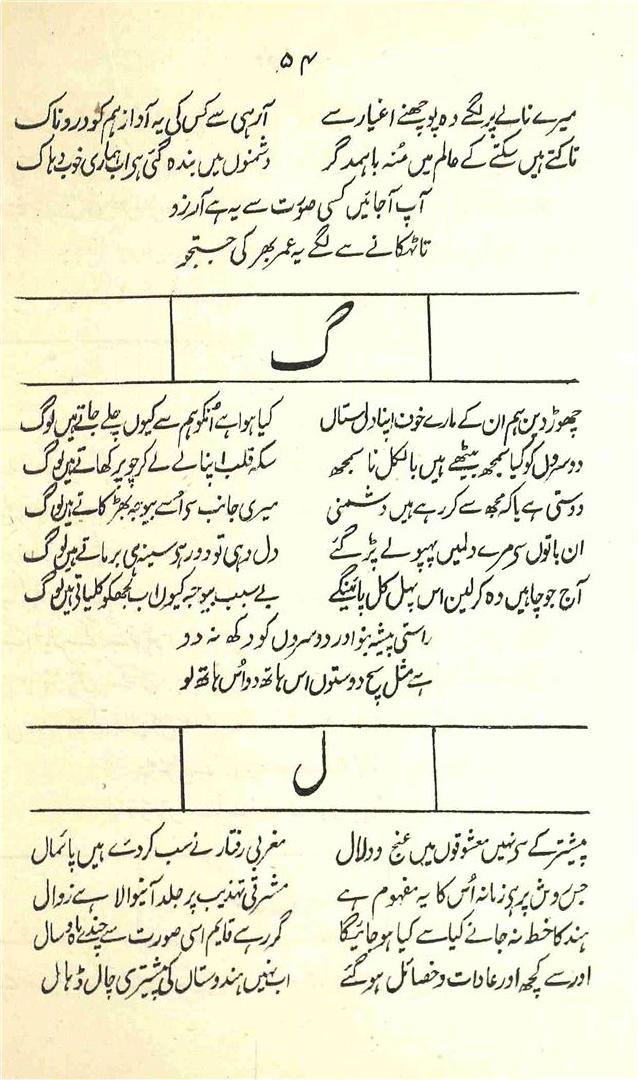 ۵۴
میرے نالے پر لگے وہ پوچھنے اغیار سے آرہی سے کس کی یہ آواز ہم کو دردناک
تاکتے ہیں سکتے کے عالم میں مُنہ باہمدگر دشمنوں میں بندہ گئی ہی اب ہماری خوب دہاک
آپ آجائیں کسی صوُرت سے یہ ہے آرزو
تاٹھکانے سے لگے یہ عمر بھر کی جستجو
گ
چھوڑ دین ہم ان کے مارے خون اپنا دلستاں کیا ہوا ہے اُنکو ہم سے کیوں چلے جاتے ہیں لوگ
دوسروں کو گیا سمجھ بیٹھے ہیں بالکل نا سمجھ سکہ قلب اپنا لے لے کر جو پرکھاتے ہیں لوگ
دوستی ہے یا کہ مجھ سے کر رہے ہیں دشمنی میری جانب سی اُسے بیوجہ بھڑکاتے ہیں لوگ
ان باتوں سی مرے دلمیں پہپولے پڑ گئے دل دہی تو دور ہی سینہ ہی برماتے ہیں لوگ
آج جو چاہیں وہ کرلین اس پہل کل پائینگے بے سبب بیوجہ کیوں اب مجھکو کلپاتی ہیں لوگ
راستی پیشہ بنو اور دوسروں کو دکھ نہ دو
ہے مثل سچ دوستوں اس ہاتھ دو اُس ہاتھ لو
ل
پیشتر کے سی نہیں معشوقوں میں غنج و دلال مغربی رفتار نے سب کردئے ہیں پائمال
جس روش پر ہی زمانہ اُس کا یہ مفہوم ہے مشرقی تہذیب پر جلد آنیوالا ہے زوال
ہند کا خط نہ جانے کیا سے کیا ہوجائیگا گر رہے قایم اسی صورت سے چندے ماہ و سال
اور سے کچھ اور عادات و خصائل ہوگئے اب نہیں ہندوستاں کی پیشتری چال ڈہال